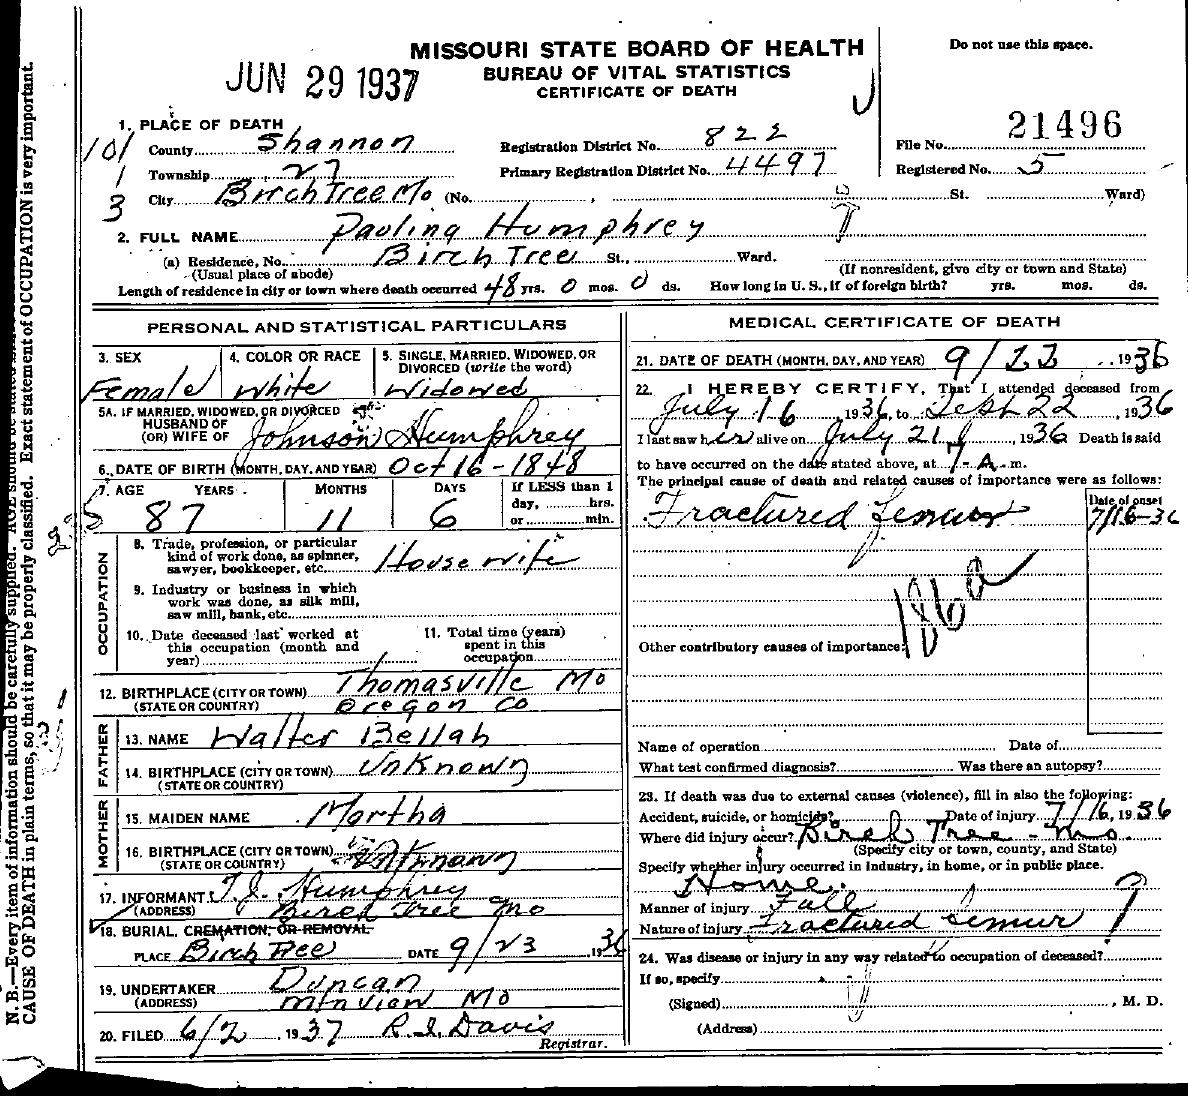 MISSOURI STATE BOARD OF HEALTH
BUREAU OF VITAL STATISTICS
CERTIFICATE OF DEATH
Do not use this space.
JUN 29 1937
21496
1. PLACE OF DEATH
County Shannon Registration District No. 822 File No.
Township 27 Primary Registration District No. 4497 Registered No. 5
City Birch Tree Mo (No. , St. Ward)
101
1
3
2. FULL NAME Paulina Humphrey
(a) Residence, No. Birch Tree St., Ward.
(Usual place of abode) (If nonresident, give city or town and State)
Length of residence in city or town where death occurred 48 yrs. 0 mos. 0 ds. How long in U. S., if of foreign birth? yrs. mos. ds.
PERSONAL AND STATISTICAL PARTICULARS
3. SEX Female
4. COLOR OR RACE White
5. SINGLE, MARRIED, WIDOWED, OR DIVORCED (write the word) Widowed
5A. IF MARRIED, WIDOWED, OR DIVORCED
HUSBAND OF
(OR) WIFE OF Johnson Humphrey
6. DATE OF BIRTH (MONTH, DAY, AND YEAR) Oct 16 - 1848
7. AGE YEARS MONTHS DAYS If LESS than 1
day, hrs.
or min.
87 11 6
OCCUPATION
8. Trade, profession, or particular
kind of work done, as spinner,
sawyer, bookkeeper, etc. House wife
9. Industry or business in which
work was done, as silk mill,
saw mill, bank, etc.
10. Date deceased last worked at
this occupation (month and
year)
11. Total time (years)
spent in this
occupation
12. BIRTHPLACE (CITY OR TOWN) Thomasville Mo
(STATE OR COUNTRY) Oregon Co
FATHER
13. NAME Walter Bellah
14. BIRTHPLACE (CITY OR TOWN) Unknown
(STATE OR COUNTRY)
MOTHER
15. MAIDEN NAME Martha
16. BIRTHPLACE (CITY OR TOWN) Unknown
(STATE OR COUNTRY)
17. INFORMANT T.J. Humphrey
(ADDRESS) Birch Tree Mo
18. BURIAL, CREMATION, OR REMOVAL
PLACE Birch Tree DATE 9/23 1936
19. UNDERTAKER Duncan
(ADDRESS) Mtn View Mo
20. FILED 6/2, 1937 R. I. Davis
Registrar.
MEDICAL CERTIFICATE OF DEATH
21. DATE OF DEATH (MONTH, DAY, AND YEAR) 9/22 1936
22. I HEREBY CERTIFY, That I attended deceased from
July 16, 1936, to Sept 22, 1936
I last saw her alive on July 21, 1936 Death is said
to have occurred on the date stated above, at 7-A. m.
The principal cause of death and related causes of importance were as follows:
Date of onset
Fractured femur 7/16-36
186a
Other contributory causes of importance:
Name of operation Date of
What test confirmed diagnosis? Was there an autopsy?
23. If death was due to external causes (violence), fill in also the following:
Accident, suicide, or homicide? Date of injury 7/16, 1936
Where did injury occur? Birch Tree - Mo.
(Specify city or town, county, and State)
Specify whether injury occurred in industry, in home, or in public place.
Home.
Manner of injury Fall
Nature of injury Fractured femur
24. Was disease or injury in any way related to occupation of deceased?
If so, specify
(Signed) , M. D.
(Address)
N. B.—Every item of information should be carefully supplied. AGE should be stated
CAUSE OF DEATH in plain terms, so that it may be properly classified. Exact statement of OCCUPATION is very important.